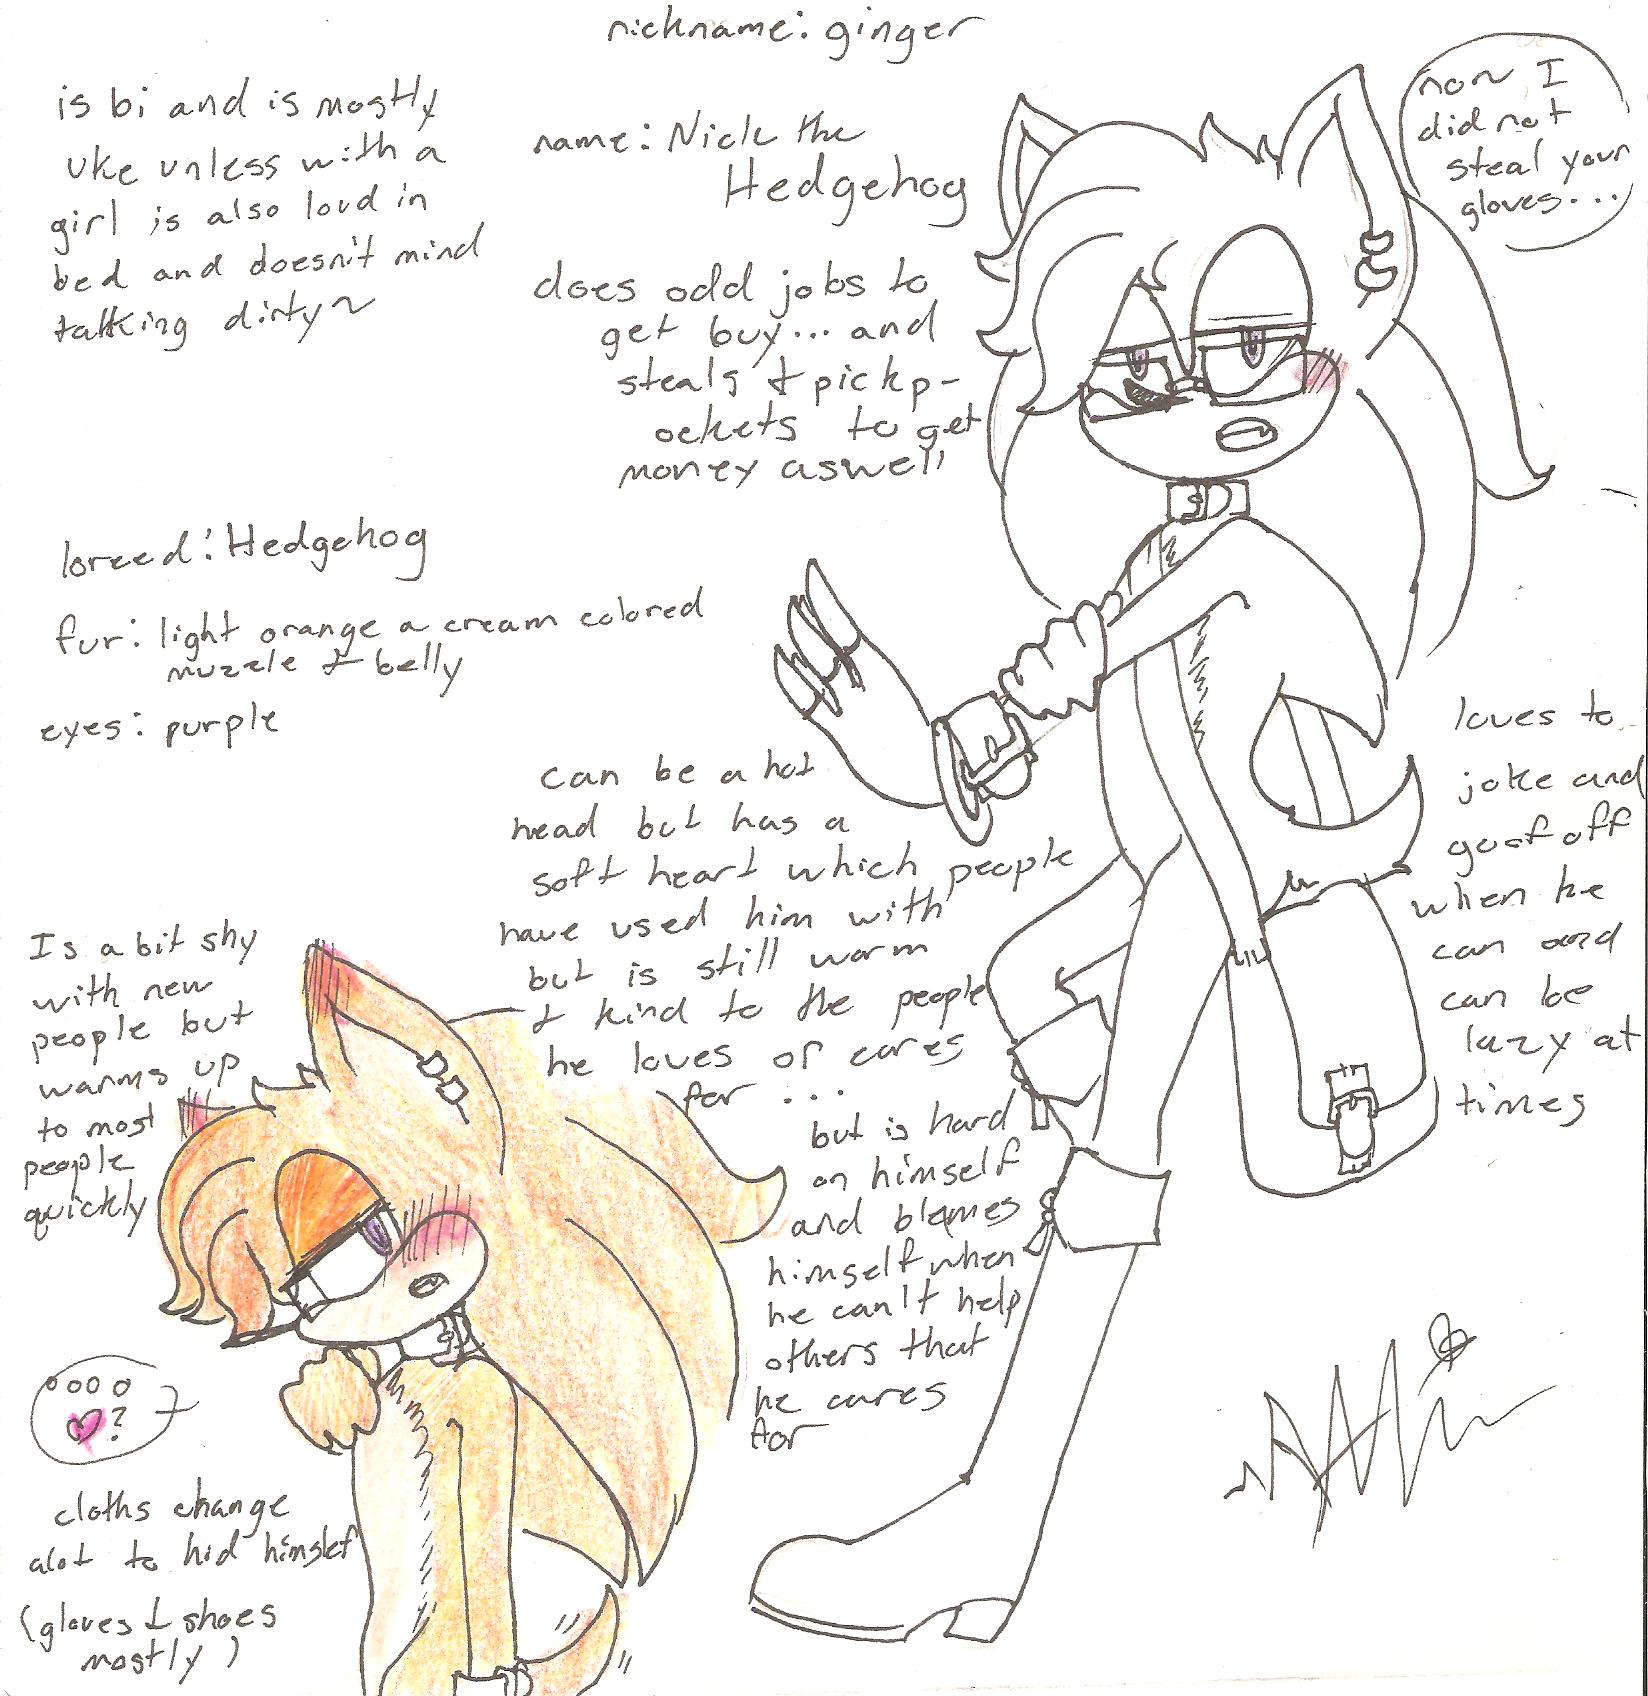 nickname: ginger
is bi and is mostly
uke unless with a
girl is also loud in
bed and doesn't mind
talking dirty~
name: Nick the
Hedgehog
does odd jobs to
get buy... and
steals & pickp-
ockets to get
money aswell
non I
did not
steal your
gloves...
breed: Hedgehog
fur: light orange a cream colored
muzzle & belly
eyes: purple
can be a hot
head but has a
soft heart which people
have used him with
but is still warm
& kind to the people
he loves or cares
for ...
but is hard
on himself
and blames
himself when
he can't help
others that
he cares
for
loves to
joke and
goof off
when he
can and
can be
lazy at
times
Is a bit shy
with new
people but
warms up
to most
people
quickly
oooo
?
cloths change
alot to hid himslef
(gloves & shoes
mostly)